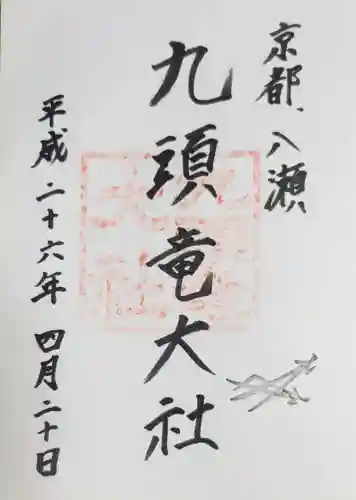 京都、八瀬
九頭竜大社
平成二十六年 四月二十日